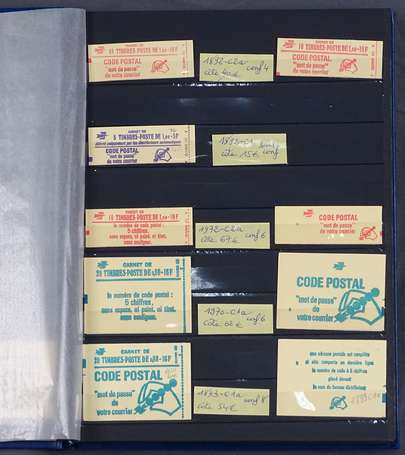 CARNET DE
10 TIMBRES-POSTE DE 1,00-10F
CODE POSTAL
"mot de passe"
de votre courrier
1892-C2a conf 4
côte 40€
CARNET DE
10 TIMBRES-POSTE DE 1,00-10F
CODE POSTAL
"mot de passe"
de votre courrier
CARNET DE
5 TIMBRES-POSTE DE 1,00-5F
CODE POSTAL
"mot de passe"
de votre courrier
côte 15€ conf
CARNET DE
10 TIMBRES-POSTE DE 1,00-10F
le numéro de code postal :
5 chiffres,
sans espace, ni point, ni tiret,
sans souligner.
1972-C2a conf 6
côte 67€
CODE POSTAL
"mot de passe"
de votre courrier
CARNET DE
20 TIMBRES-POSTE DE 0,80-16F
le numéro de code postal :
5 chiffres,
sans espace, ni point, ni tiret,
sans souligner.
1970-C1a conf 6
côte 62€
CODE POSTAL
"mot de passe"
de votre courrier
CARNET DE
20 TIMBRES-POSTE DE 0,80-16F
CODE POSTAL
"mot de passe"
de votre courrier
1893-C1a conf 8
côte 54€
une adresse postale est complète
si elle comporte en dernière ligne
le numéro de code à 5 chiffres
placé devant
le nom du bureau distributeur
1893 C1a